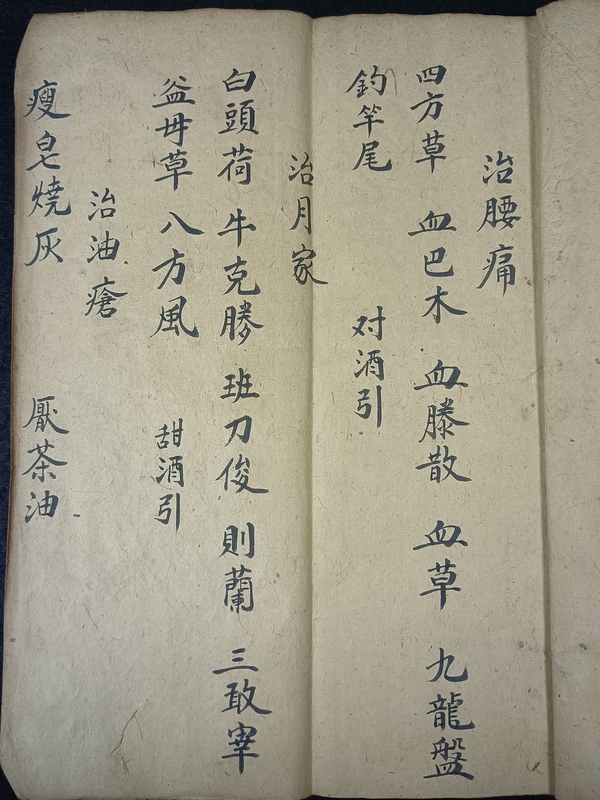 治腰痛
四方草 血巴木 血滕散 血草 九龍盤
釣竿尾 对酒引
治月家
白頭荷 牛克滕 班刀俊 則蘭 三敢宰
益毋草 八方風 甜酒引
治油瘡
瘦皂燒灰 厭茶油